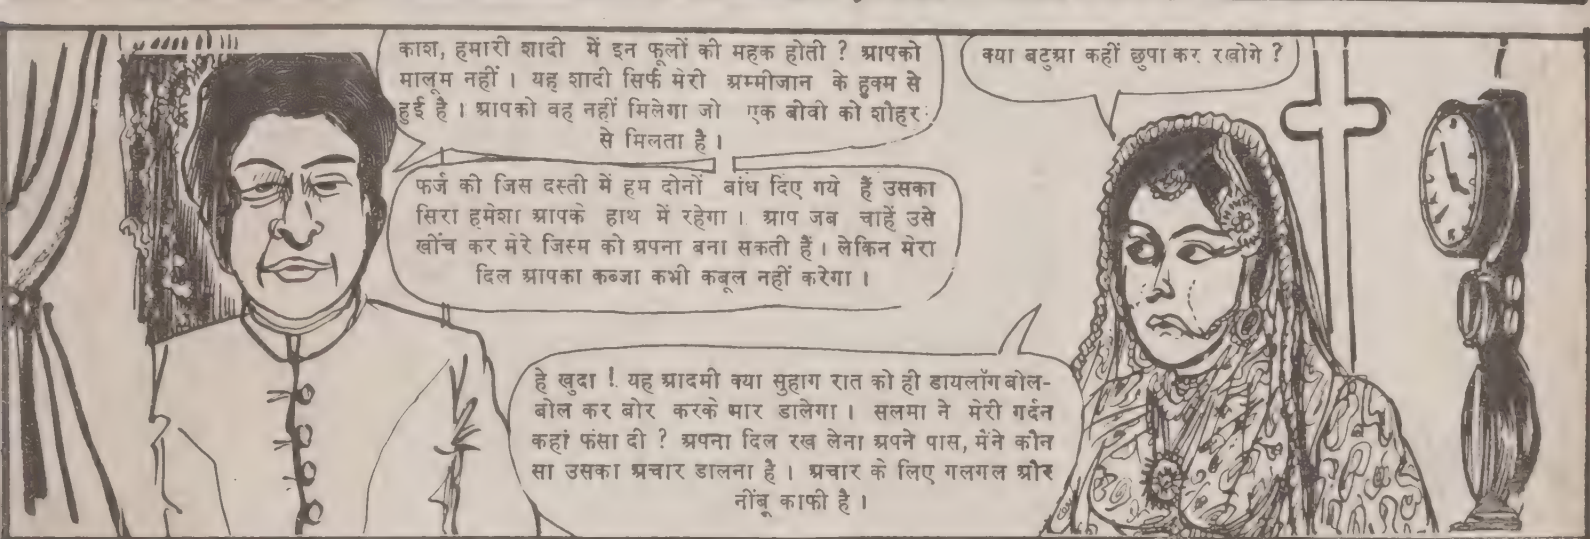 काश, हमारी शादी में इन फूलों की महक होती ? आपको
मालूम नहीं । यह शादी सिर्फ मेरी अम्मीजान के हुक्म से
हुई है । आपको वह नहीं मिलेगा जो एक बीवी को शौहर
से मिलता है ।
क्या बटुआ कहीं छुपा कर रखोगे ?
फर्ज की जिस दस्ती में हम दोनों बांध दिए गये हैं उसका
सिरा हमेशा आपके हाथ में रहेगा । आप जब चाहें उसे
खींच कर मेरे जिस्म को अपना बना सकती हैं । लेकिन मेरा
दिल आपका कब्जा कभी कबूल नहीं करेगा ।
हे खुदा ! यह आदमी क्या सुहाग रात को ही डायलॉग बोल-
बोल कर बोर करके मार डालेगा । सलमा ने मेरी गर्दन
कहां फंसा दी ? अपना दिल रख लेना अपने पास, मैंने कौन
सा उसका अचार डालना है । अचार के लिए गलगल और
नींबू काफी है ।